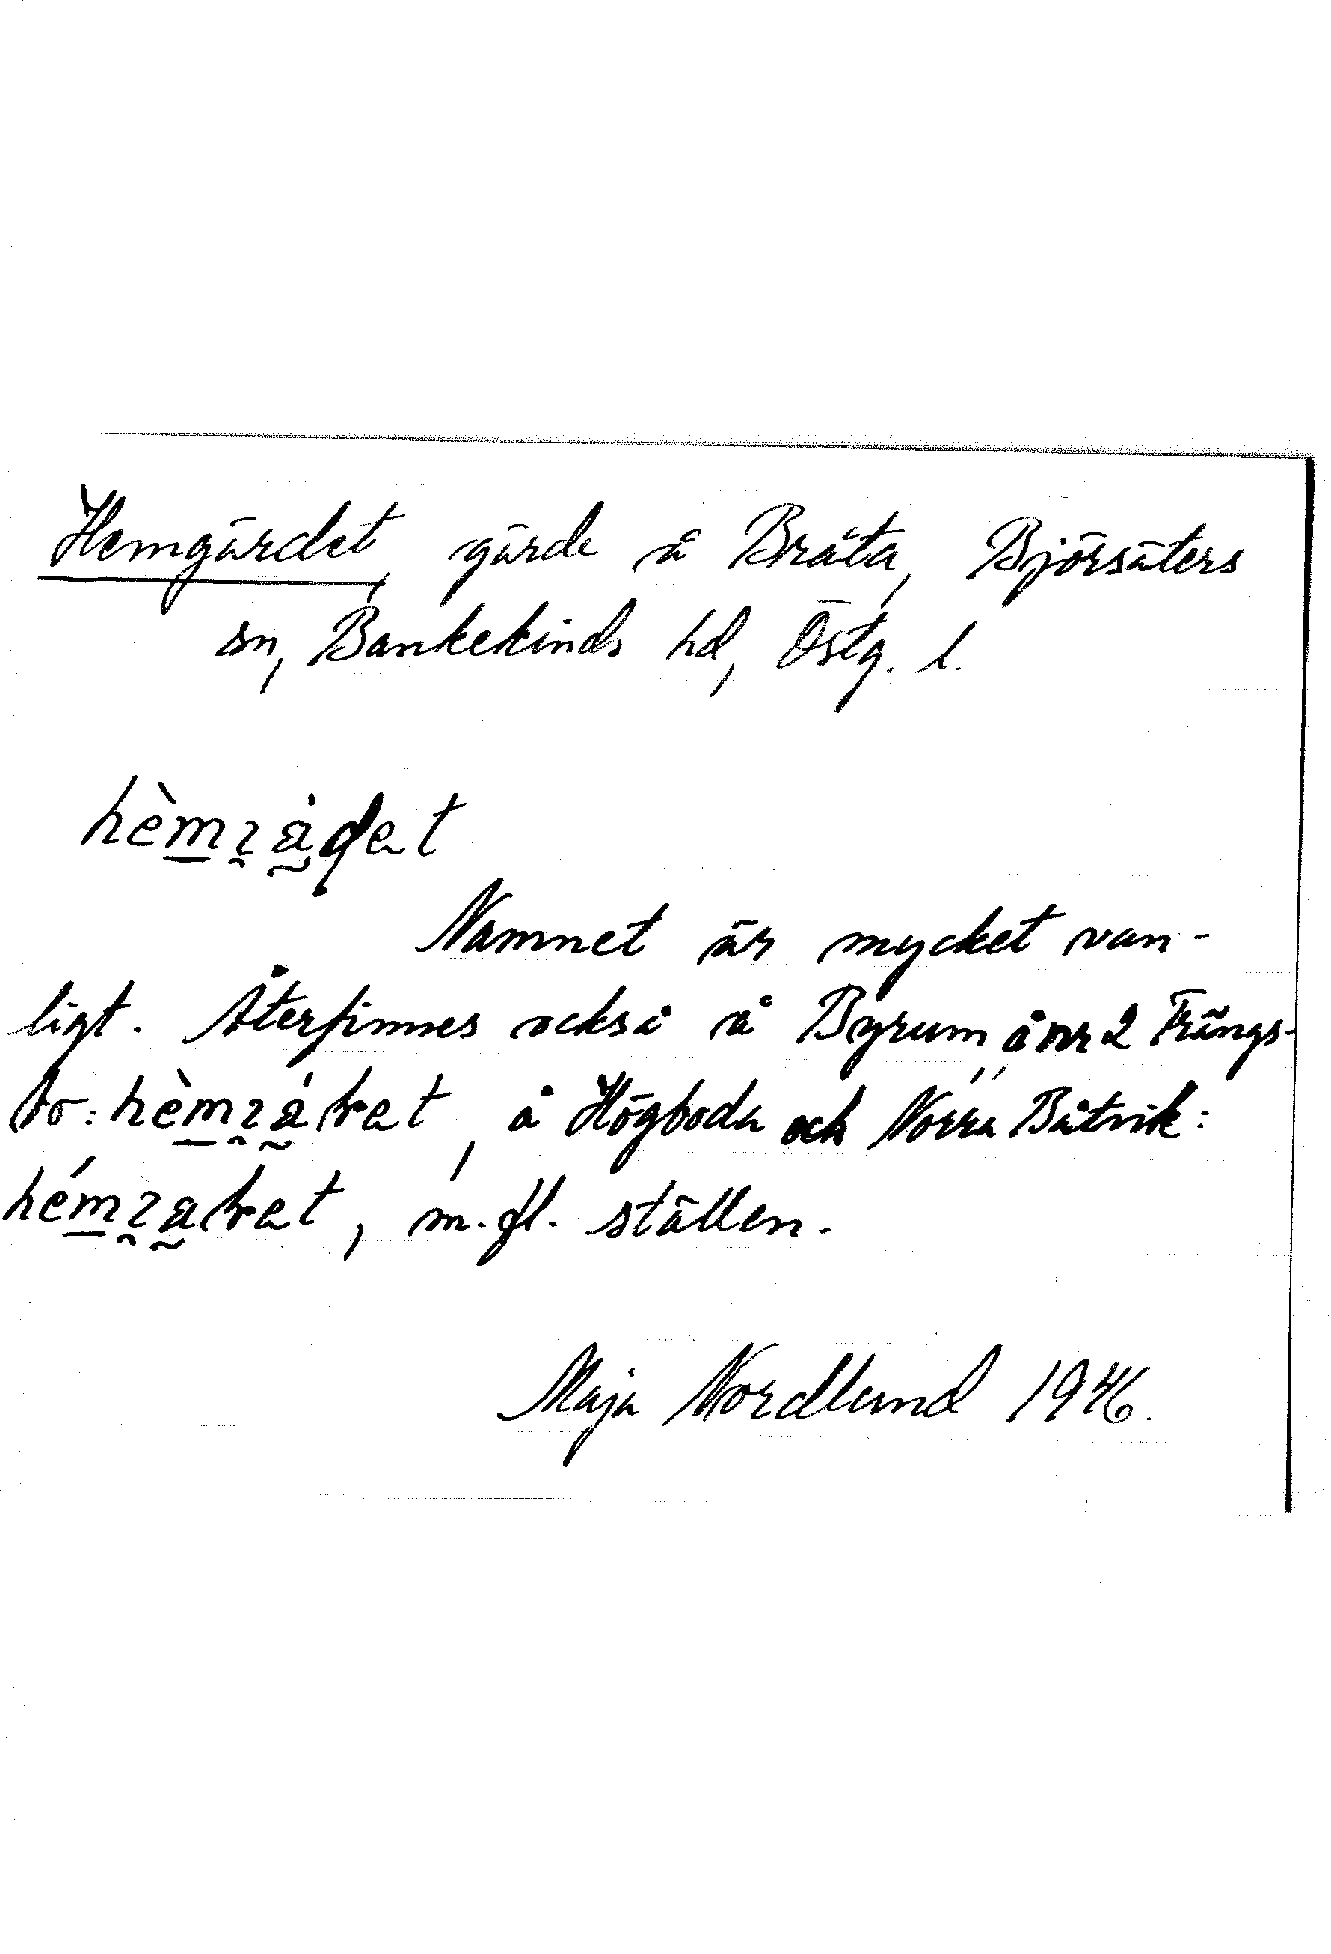 Hemgärdet, gärde å Bråta, Björsäters
sn, Bankekinds hd, Östg. l.
hèmɿådet
Namnet är mycket van-
ligt. Återfinnes också å Byrum, å nr 2 Frängs-
bo: hèmɿåket, å Högboda och Norra Båtvik:
hémɿaket, m. fl. ställen.
Maja Nordlund 1946.